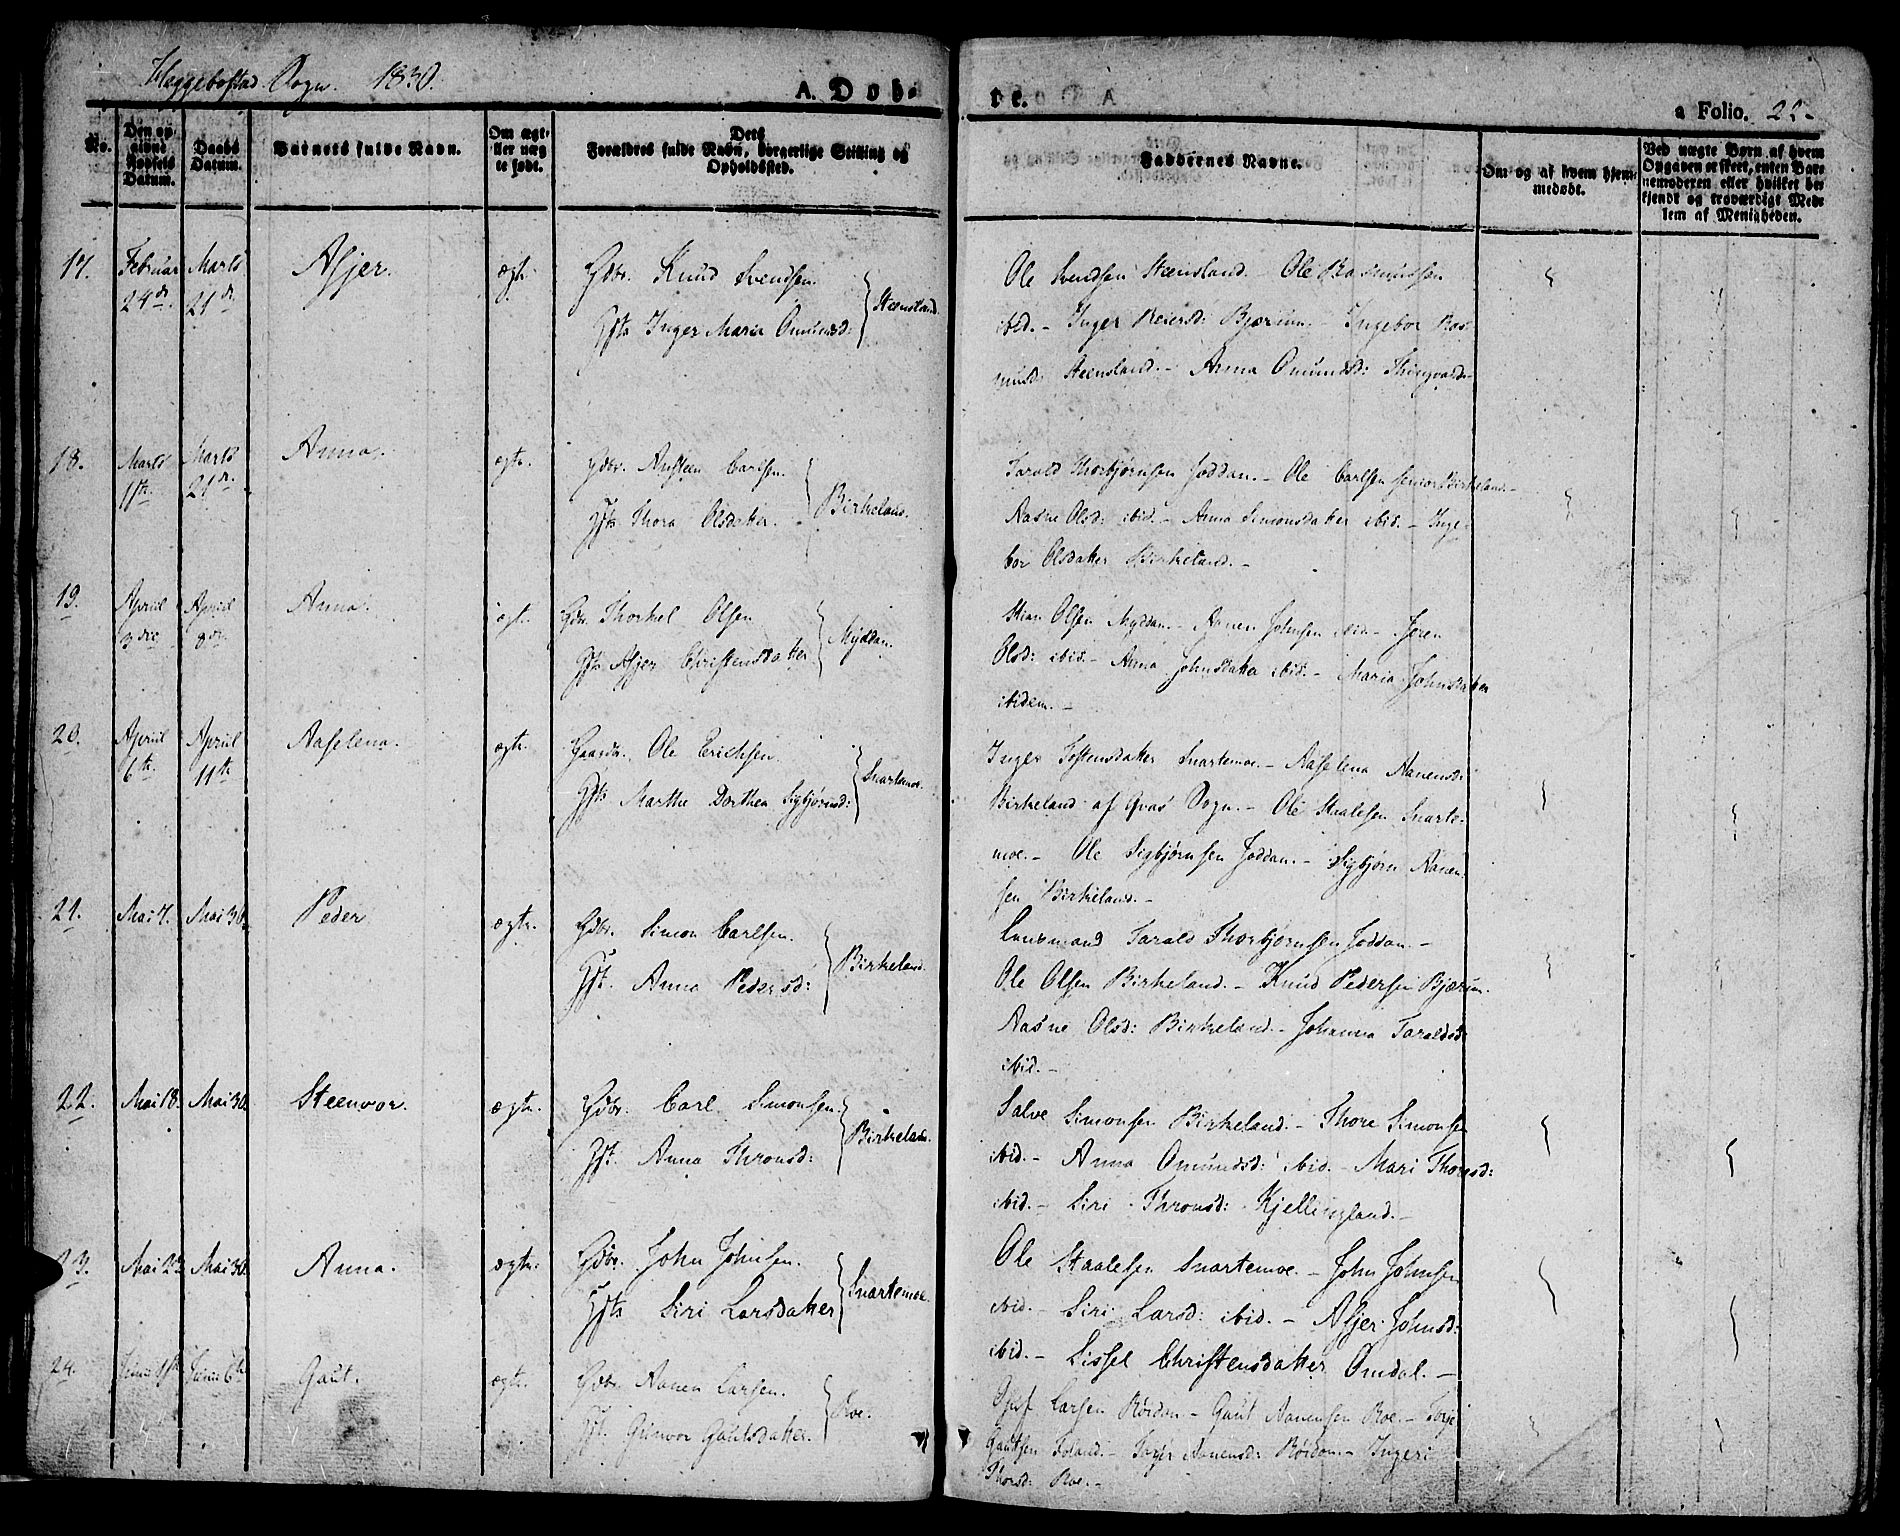 Hæggebostad Sogn. 1830.
A. Døb-
te.
a Folio. 22-
No.
Den opgivne Fødsels Datum.
Daabs Datum.
Barnets fulde Navn.
Om ægte eller uægte født.
Forældres fulde Navn, Dets borgerlige Stilling og Opholdssted.
Faddernes Navne.
Om og af hvem hjemmedøbt.
Ved uægte Børn af hvem Opgaven er skeet, enten Barnemoderen eller hvilket bekjendt og troværdigt Medlem af Menigheden.
17. Februar 24de Marts 21de Asjer. ægte.
Gdbr. Knud Svendsen
Gft. Inger Maria Omunsd: } Steensland
Ole Svendsen Steensland. - Ole Rasmussen
ibid. - Inger Reiersd: Bjærum. Ingebor Ras-
musd: Steensland. - Anna Omundsd: Thingvatn
18. Marts 11te Marts 21de Anna. ægte.
Gdbr. Austeen Carlsen
Gft. Thora Olsdatter. } Birkeland.
Tarald Thorbjørnsen Joddan. - Ole Carlsen senior Birkeland. -
Aasne Olsd: ibid. - Anna Simonsdatter ibid. - Inge-
bor Olsdatter Birkeland. -
19. April 3die April 8de Anna. ægt.
Gdbr. Thorkel Olsen
Gft. Asjer Christensdatter } Myddan.
Stian Olsen Myddan. - Aanen Johnsen ibid. - Joren
Olsd: ibid. - Anna Johnsdatter ibid. - Maria Johnsdatter
ibidem. -
20. April 6te April 11te Aaselena. ægte.
Gaardbr. Ole Erichsen.
Gft. Marthe Dorthea Sigbjørnsd: } Snartemoe.
Inger Tostensdatter Snartemoe. - Aaselena Aanensd:
Birkeland af Qvas Sogn. - Ole Staalesen Snarte-
moe. - Ole Sigbjørnsen Joddan. - Sigbjørn Aanen-
sen Birkeland. -
21. Mai 7. Mai 30. Peder ægte.
Gdbr. Simon Carlsen.
Gft. Anna Pedersd: } Birkeland.
Lensmand Tarald Thorbjørnsen Joddan. -
Ole Olsen Birkeland. - Knud Pedersen Bjærum.
Aasne Olsd: Birkeland. - Johanna Taraldsd:
ibid. -
22. Mai 18. Mai 30. Steenvor. ægte.
Gdbr. Carl Simonsen.
Gft. Anna Thronsd: } Birkeland.
Salve Simonsen Birkeland. - Thore Simonsen
ibid. - Anna Omundsd: ibid. - Mari Thoresd:
ibid. - Siri Thronsd: Kjellingland. -
23. Mai 23 Mai 30. Anna. ægte.
Gdbr. John Johnsen.
Gft. Siri Larsdatter } Snartemoe.
Ole Staalesen Snartemoe. - John Johnsen
ibid. - Siri Larsd: ibid. - Asjer Johnsd:
ibid. - Sissel Christensdatter Omdal. -
24. Juni Juni 6te Gaut. ægte.
Gdbr. Aanen Larsen.
Gft. Gunvor Gautsdatter. } Roe.
Larsen Røidan - Gaut Aanensen Roe. - Torje
Gautsen Foland. - Aanensd: Røidan. - Ingeri
Thorsd: Roe. -